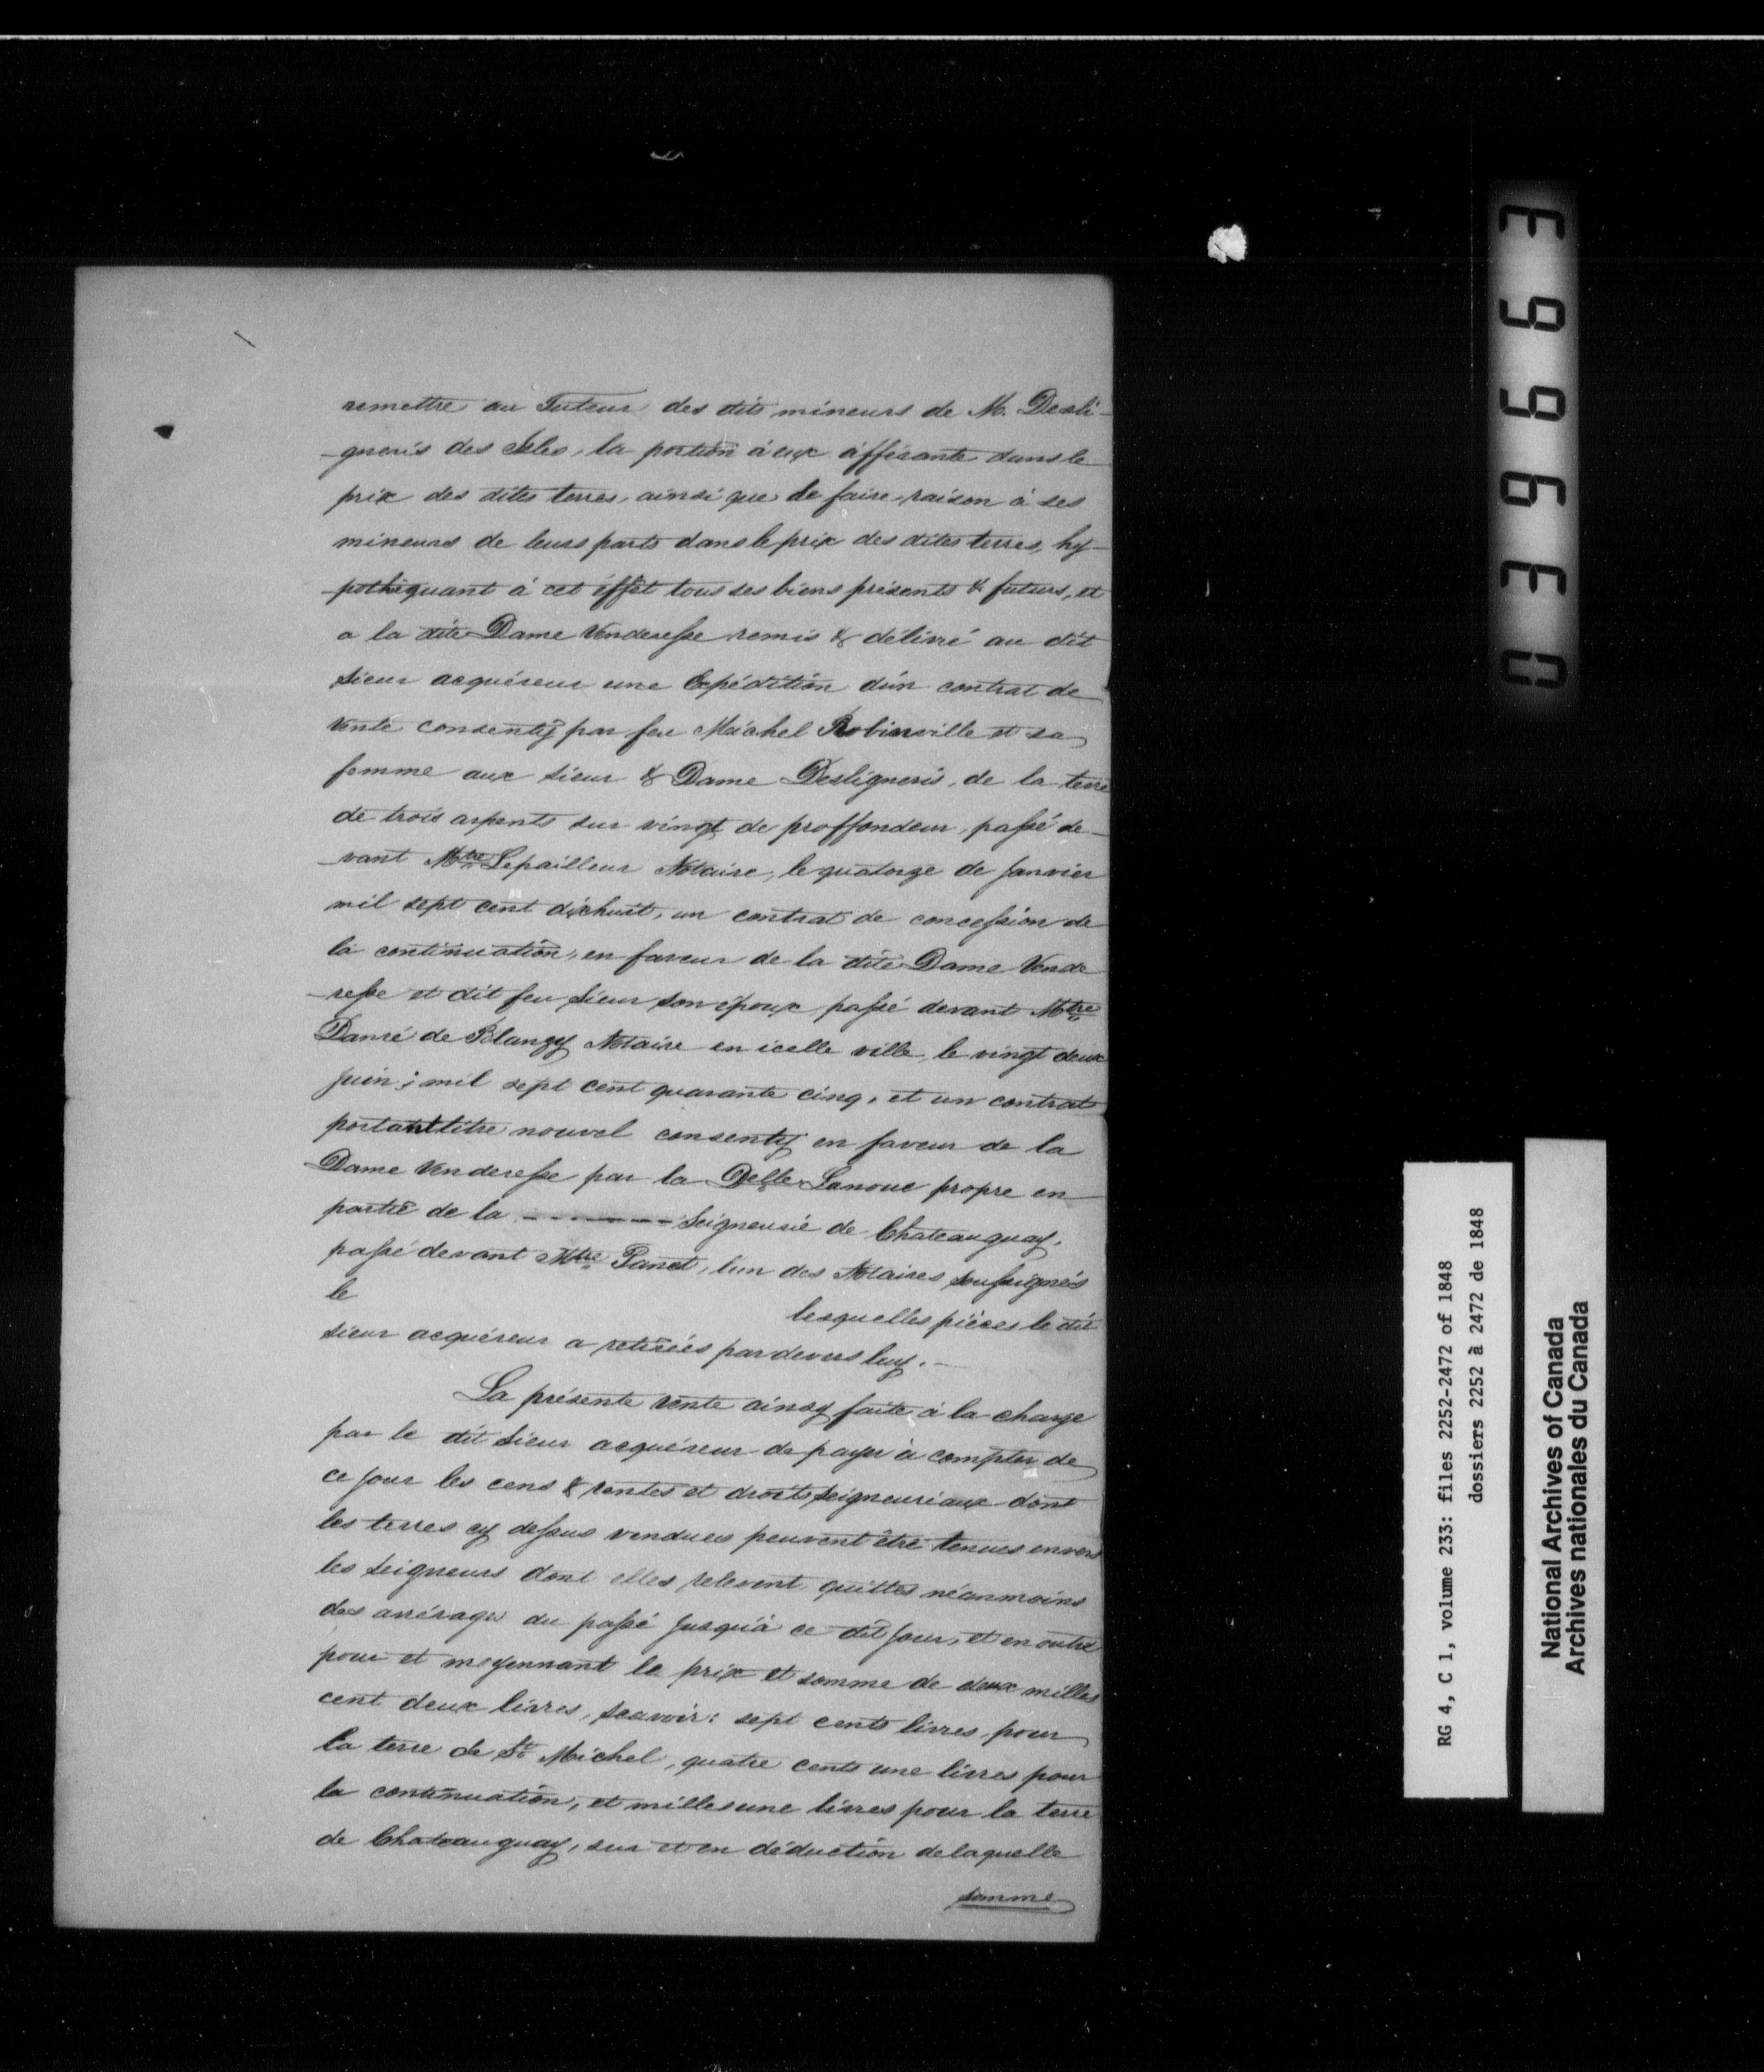 remettre au Tuteur des dits mineurs de M. Desli-
-gneris des Isles, la portion à eux àfférante dans le
prix des dites terres, ainsi que de faire raison à ses
mineurs de leurs parts dans le prix des dites terres, hy-
-pothèquant à cet éffet tous ses biens présents & futurs, et
a la dite Dame Venderesse remis & délivré au dit
sieur acquéreur une Expédition d'un contrat de
vente consenty par feu Michel Robinville et sa
femme aux sieur & Dame Desligneris, de la terre
de trois arpents sur vingt de proffondeur, passé de-
-vant Mtre Lepailleur Notaire, le quatorze de Janvier
mil sept cent dixhuit, un contrat de concession de
la continuation, en faveur de la dite Dame Vende
-resse et dit feu sieur son époux passé devant Mtre
Danré de Blanzy Notaire en icelle ville, le vingt deux
juin; mil sept cent quarante cinq, et un contrat
portant titre nouvel consenty en faveur de la
Dame Venderesse par la Delle Lanoue propre en
partie de la - - - - - - - - Seigneurie de Chateauguay,
passé devant Mtre Panet, l'un des Notaires soussignés
le
lesquelles pièces le dit
sieur acquéreur a retirées pardevers luy. -
La présente vente ainsy faite à la charge
par le dit sieur acquéreur de payer à compter de
ce jour les cens & rentes et droits seigneuriaux dont
les terres cy dessus vendues peuvent être tenues envers
les seigneurs dont elles relevent, quittes néanmoins
des arrérages du passé jusqu'à ce dit jour, et en outre
pour et moyennant le prix et somme de deux milles
cent deux livres, scavoir: sept cents livres pour
la terre de St Michel, quatre cents une livres pour
la continuation, et milles une livres pour la terre
de Chateauguay, sur et en déduction de laquelle
somme
039663
RG 4, C 1, volume 233: files 2252-2472 of 1848
dossiers 2252 à 2472 de 1848
National Archives of Canada
Archives nationales du Canada